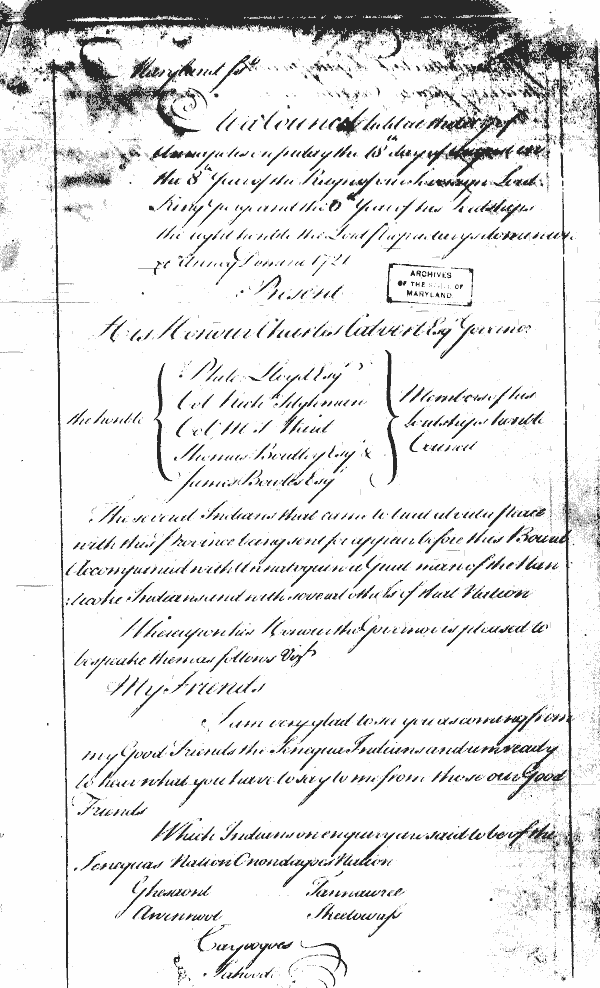 Maryland ss.t
At a Council held at the City of
Annapolis on Friday the 18th day of August in
the 8th Year of the Reign of our Sovereign Lord
King George and the 6th Year of his Lordships
the right honble the Lord Proprietarys dominion
&c Annoq Domini 1721
Present
ARCHIVES
OF THE STATE OF
MARYLAND
His Honour Charles Calvert Esqr Governor
the honble
Phile. Lloyd Esqr
Col Richd Tilghman
Col M T Ward
Thomas Bordley Esqr &
James Bowles Esqr
Members of his
Lordships honble
Council
The several Indians that came to treat about peace
with this Province being sent for appear before this Board
Accompanied with a Great man of the Nan
ticoke Indians and with several others of that Nation
Whereupon his Honour the Governor is pleased to
bespeake them as follows Vizt
My Friends
I am very glad to see you as coming from
my Good Friends the Senequa Indians and am ready
to hear what you have to say to me from those our Good
Friends
Which Indians on enquiry are said to be of the
Senequas Nation Onondagoes Nation
Ghesaont Tannawree
Awennool Skeetowass
Cayoogoes